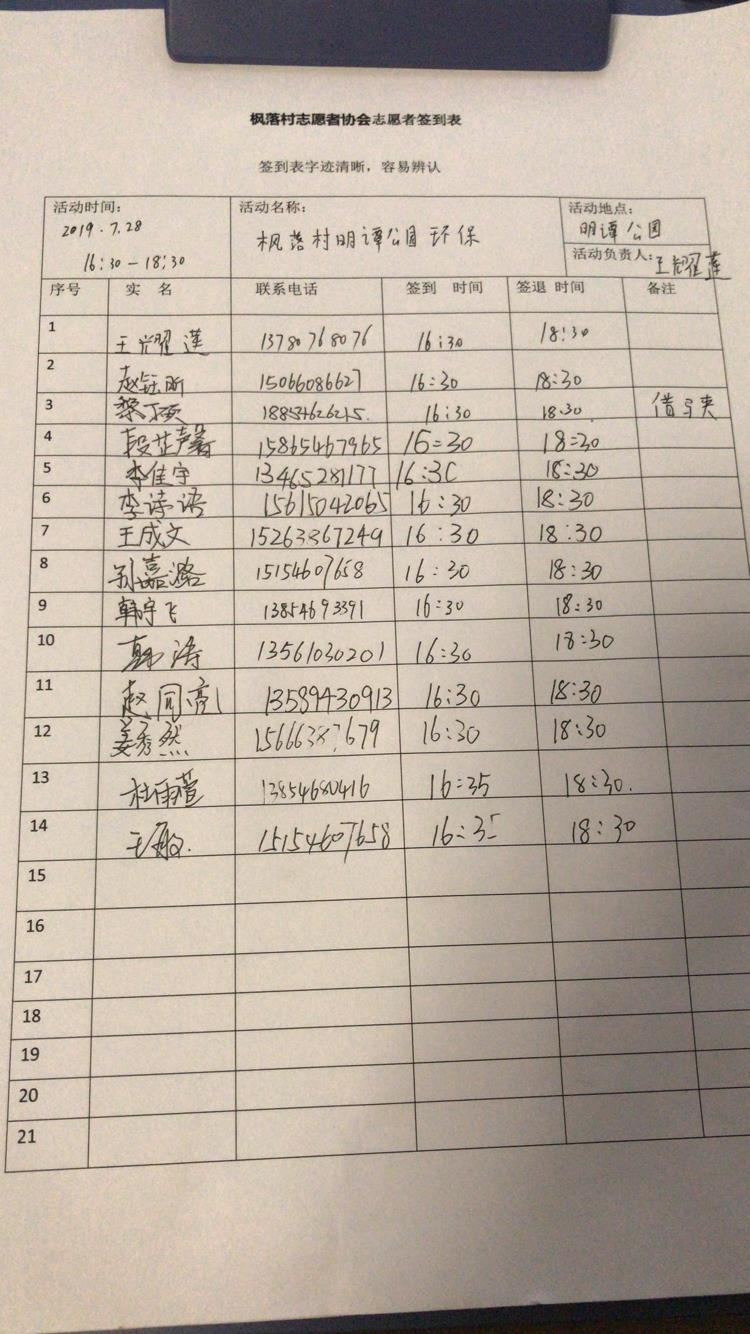 枫落村志愿者协会志愿者签到表
签到表字迹清晰，容易辨认
活动时间： 活动名称： 活动地点：
2019.7.28 枫落村明谭公园环保 明谭公园
16:30－18:30 活动负责人：王耀莲
序号 实 名 联系电话 签到 时间 签退 时间 备注
1 王耀莲 13780768076 16:30 18:30
2 赵钰昕 15066086627 16:30 18:30
3 16:30 18:30 借马夹
4 15865467965 16=30 18=30
5 李佳宇 13465281177 16:30 18:30
6 李诗语 15615042065 16:30 18:30
7 王成文 15263867249 16:30 18:30
8 孙嘉潞 15154607658 16:30 18:30
9 韩宇飞 13854693391 16:30 18:30
10 韩涛 13561030201 16:30 18:30
11 赵同亮 13589430913 16:30 18:30
12 姜秀然 16:30 18:30
13 杜雨萱 13854680416 16:35 18:30.
14 王敏. 15154607658 16:35 18:30
15
16
17
18
19
20
21